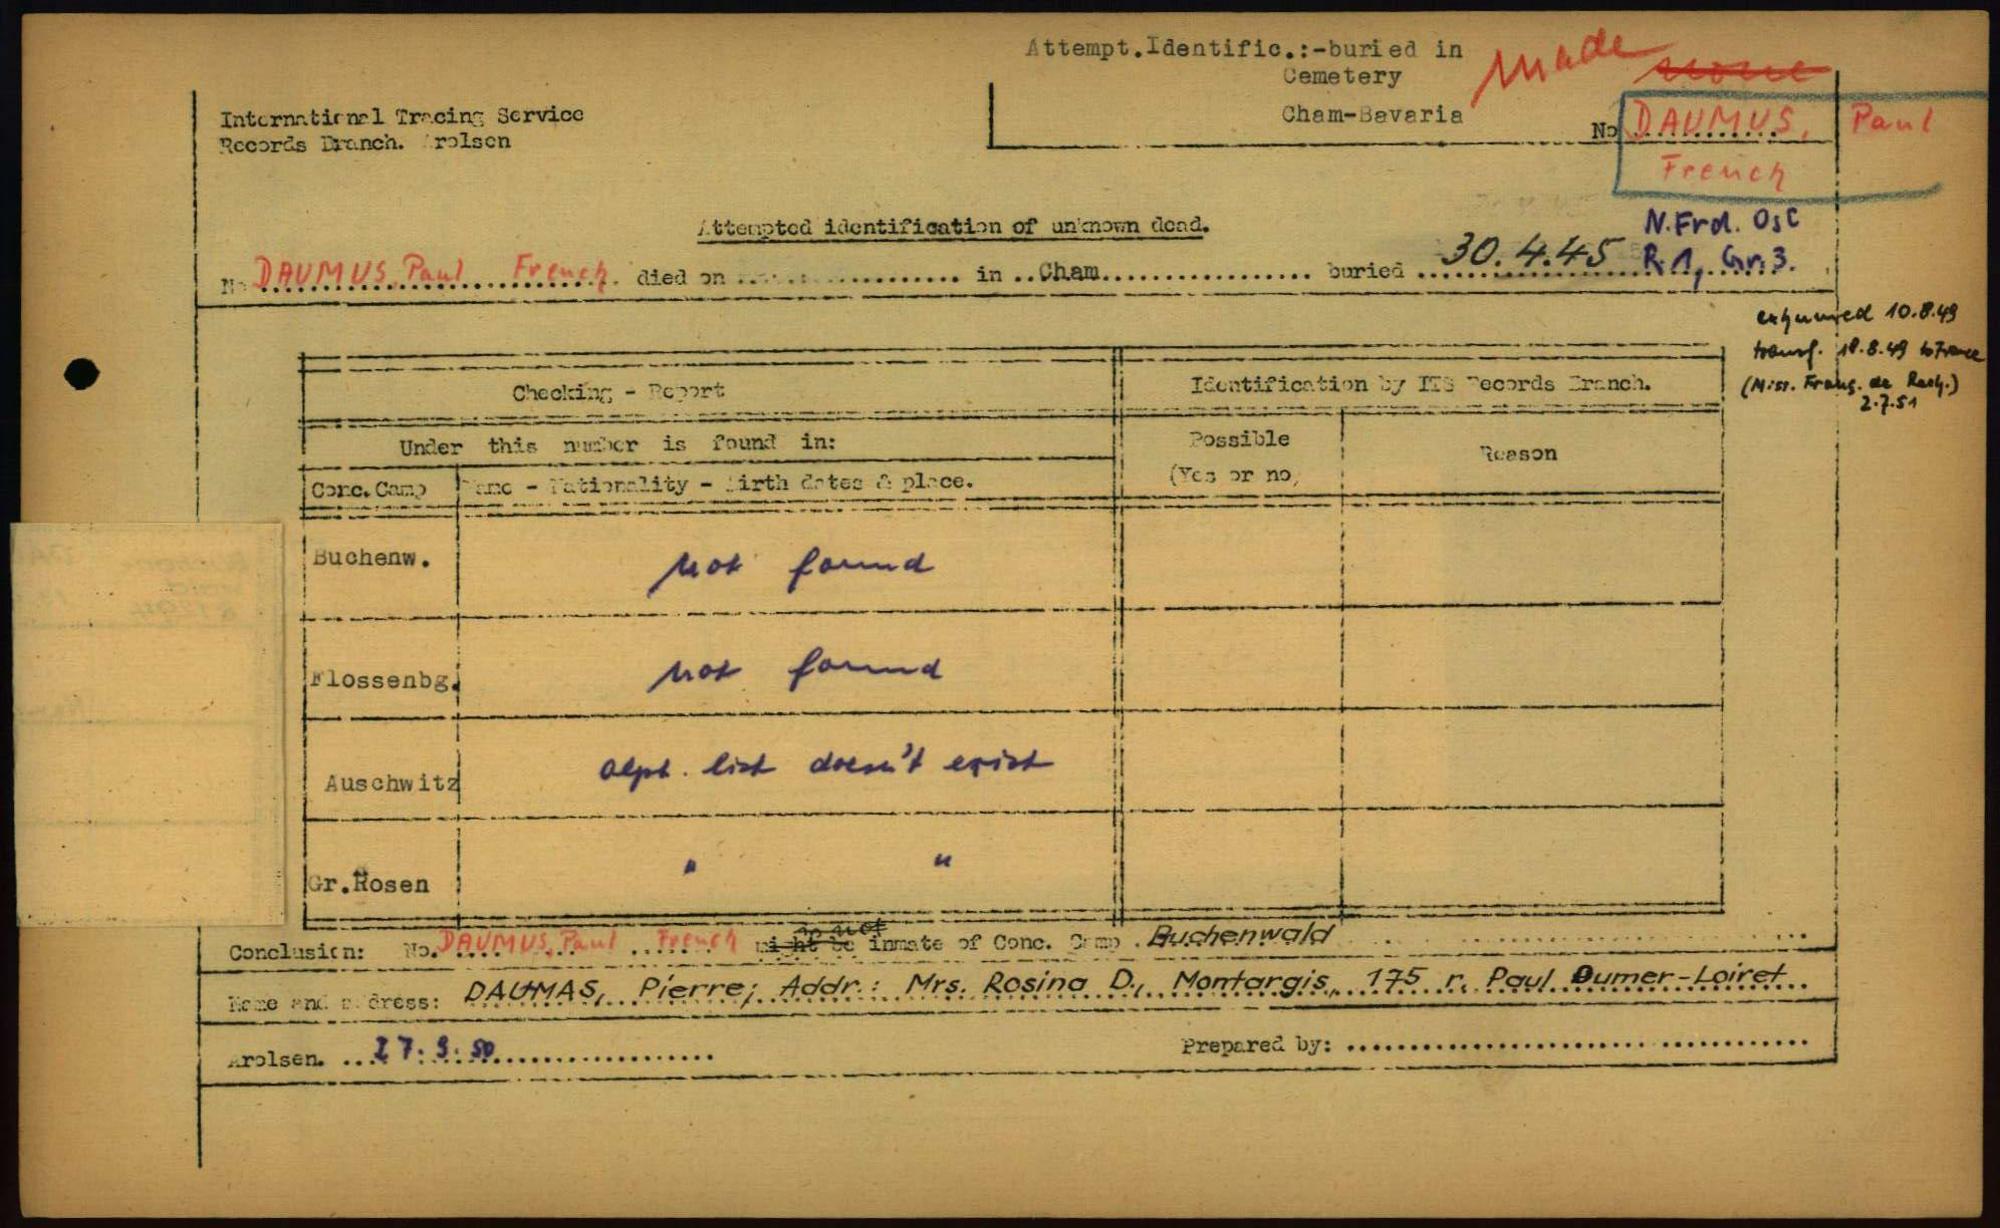 Attempt.Identific.:-buried in
Cemetery
Cham-Bavaria
made
none
No DAUMUS, Paul
French
International Tracing Service
Records Branch. Arolsen
Attempted identification of unknown dead.
N.Frd. OsC
R.1, Gr.3.
No DAUMUS, Paul French. died on .......... in ..Cham.......... buried ..30.4.45
exhumed 10.8.49
transf. 18.8.49 to France
(Miss. Franç. de Rech.)
2.7.51
Checking - Report
Identification by ITS Records Branch.
Under this number is found in:
Possible
(Yes or no)
Reason
Conc.Camp
Name - Nationality - Birth dates & place.
Buchenw. not found
Flossenbg. not found
Auschwitz alph. list doesn't exist
Gr.Rosen " "
Conclusion: No. DAUMUS, Paul French might be is not inmate of Conc. Camp . Buchenwald
Name and address: DAUMAS, Pierre; Addr.: Mrs. Rosina D., Montargis, 175 r. Paul Dumer-Loiret
Arolsen. ...27.9.50....................
Prepared by: ..............................